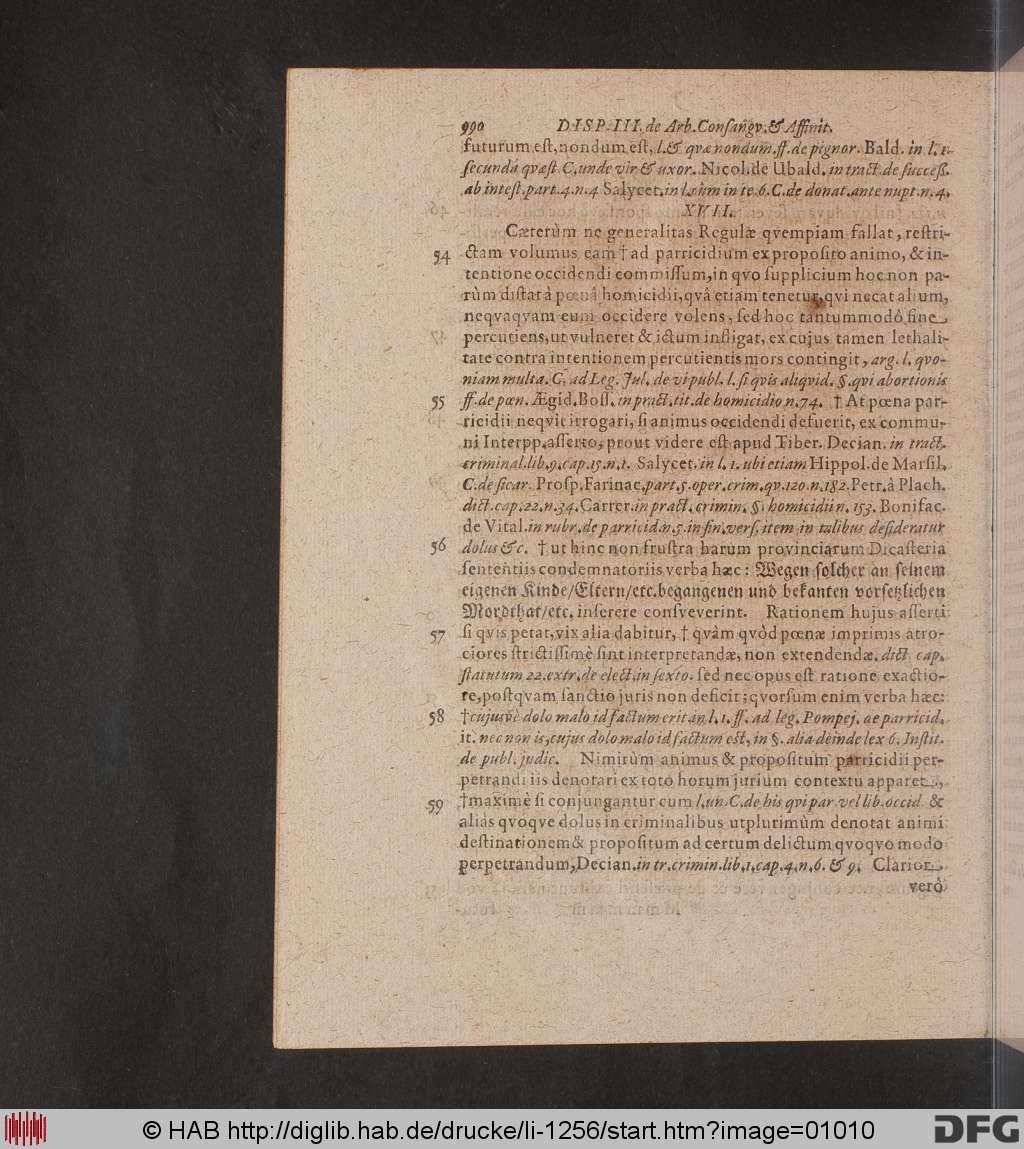 990 DISP. III. de Arb. Consangv. & Affinit.
futurum est, nondum est, l. & quæ nondum. ff. de pignor. Bald. in l. 1.
secunda quæst. C. unde vir & uxor. Nicol. de Ubald. in tract. de success.
ab intest. part. 4. n. 4 Salycet. in l. cùm in te. 6. C. de donat. ante nupt. n. 4.
XVII.
Cæterùm ne generalitas Regulæ qvempiam fallat, restri-
54 ctam volumus eam † ad parricidium ex proposito animo, & in-
tentione occidendi commissum, in qvo supplicium hoc non pa-
rùm distat à pœnâ homicidii, qvâ etiam tenetur, qvi necat alium,
neqvaqvam eum occidere volens, sed hoc tantummodò fine
percutiens, ut vulneret & ictum infligat, ex cujus tamen lethali-
tate contra intentionem percutientis mors contingit, arg. l. qvo-
niam multa. C. ad Leg. Jul. de vi publ. l. si qvis aliqvid. §. qvi abortionis
55 ff. de pœn. Ægid. Boss. in pract. tit. de homicidio n. 74. † At pœna par-
ricidii neqvit irrogari, si animus occidendi defuerit, ex commu-
ni Interpp. asserto, prout videre est apud Tiber. Decian. in tract.
criminal. lib. 9. cap. 15. n. 1. Salycet. in l. 1. ubi etiam Hippol. de Marsil.
C. de sicar. Prosp. Farinac. part. 5. oper. crim. qv. 120. n. 182. Petr. à Plach.
dict. cap. 22. n. 34. Carrer. in pract. crimin. §. homicidii n. 153. Bonifac.
de Vital. in rubr. de parricid. n. 5. in fin. vers. item in talibus desideratur
56 dolus &c. † ut hinc non frustra harum provinciarum Dicasteria
sententiis condemnatoriis verba hæc: Wegen solcher an seinem
eigenen Kinde/Eltern/etc. begangenen und bekanten vorsetzlichen
Mordthat/etc. inserere consveverint. Rationem hujus asserti
57 si qvis petat, vix alia dabitur, † qvàm qvòd pœnæ imprimis atro-
ciores strictissimè sint interpretandæ, non extendendæ. dict. cap.
statutum 22. extr. de elect. in sexto. sed nec opus est ratione exactio-
re, postqvam sanctio juris non deficit; qvorsum enim verba hæc:
58 † cujusvè dolo malo id factum erit in l. 1. ff. ad leg. Pompej. de parricid.
it. nec non is, cujus dolo malo id factum est, in §. alia deinde lex 6. Instit.
de publ. judic. Nimirùm animus & propositum parricidii per-
petrandi iis denotari ex toto horum jurium contextu apparet,
59 † maximè si conjungantur cum l. un. C. de his qvi par. vel lib. occid. &
aliàs qvoqve dolus in criminalibus utplurimùm denotat animi
destinationem & propositum ad certum delictum qvoqvo modo
perpetrandum, Decian. in tr. crimin. lib. 1. cap. 4. n. 6. & 9. Clarior
verò
© HAB http://diglib.hab.de/drucke/li-1256/start.htm?image=01010
DFG